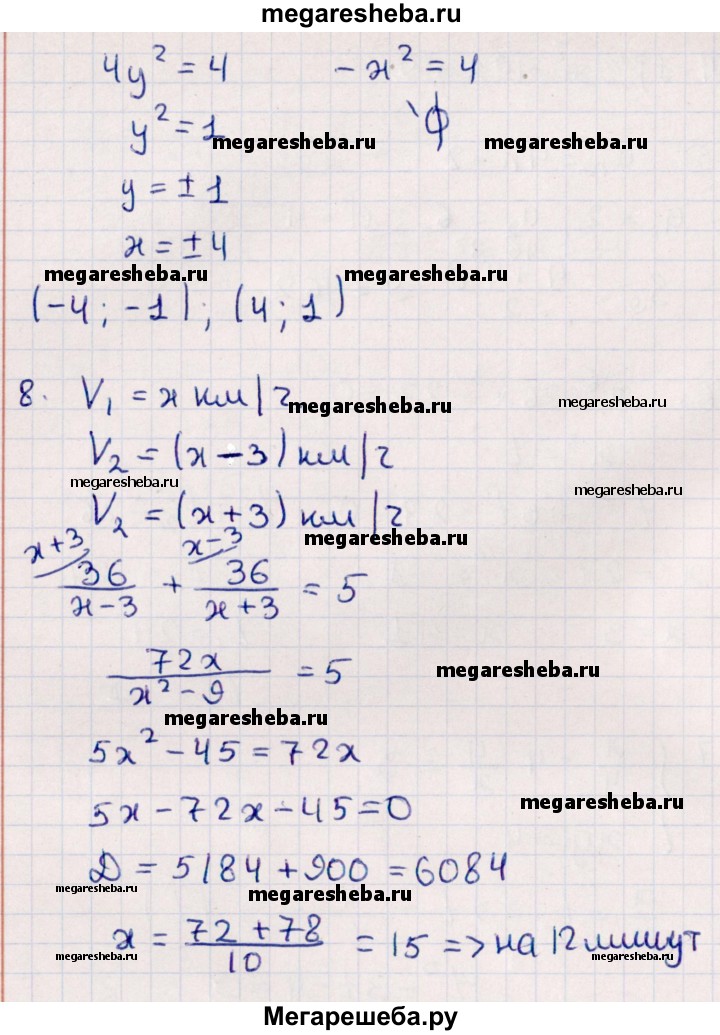 megaresheba.ru
4y² = 4 -x² = 4
y² = 1 ∅
megaresheba.ru megaresheba.ru
y = ± 1
x = ± 4
megaresheba.ru megaresheba.ru
(-4; -1); (4; 1)
8. V₁ = x км/ч
megaresheba.ru megaresheba.ru
V₂ = (x - 3) км/ч
megaresheba.ru megaresheba.ru
V₂ = (x + 3) км/ч
megaresheba.ru
x+3 x-3
36/(x-3) + 36/(x+3) = 5
72x/(x² - 9) = 5
megaresheba.ru
megaresheba.ru
5x² - 45 = 72x
5x - 72x - 45 = 0
megaresheba.ru
D = 5184 + 900 = 6084
megaresheba.ru megaresheba.ru
x = (72 + 78)/10 = 15 => на 12 минут
megaresheba.ru megaresheba.ru
Мегарешеба.ру